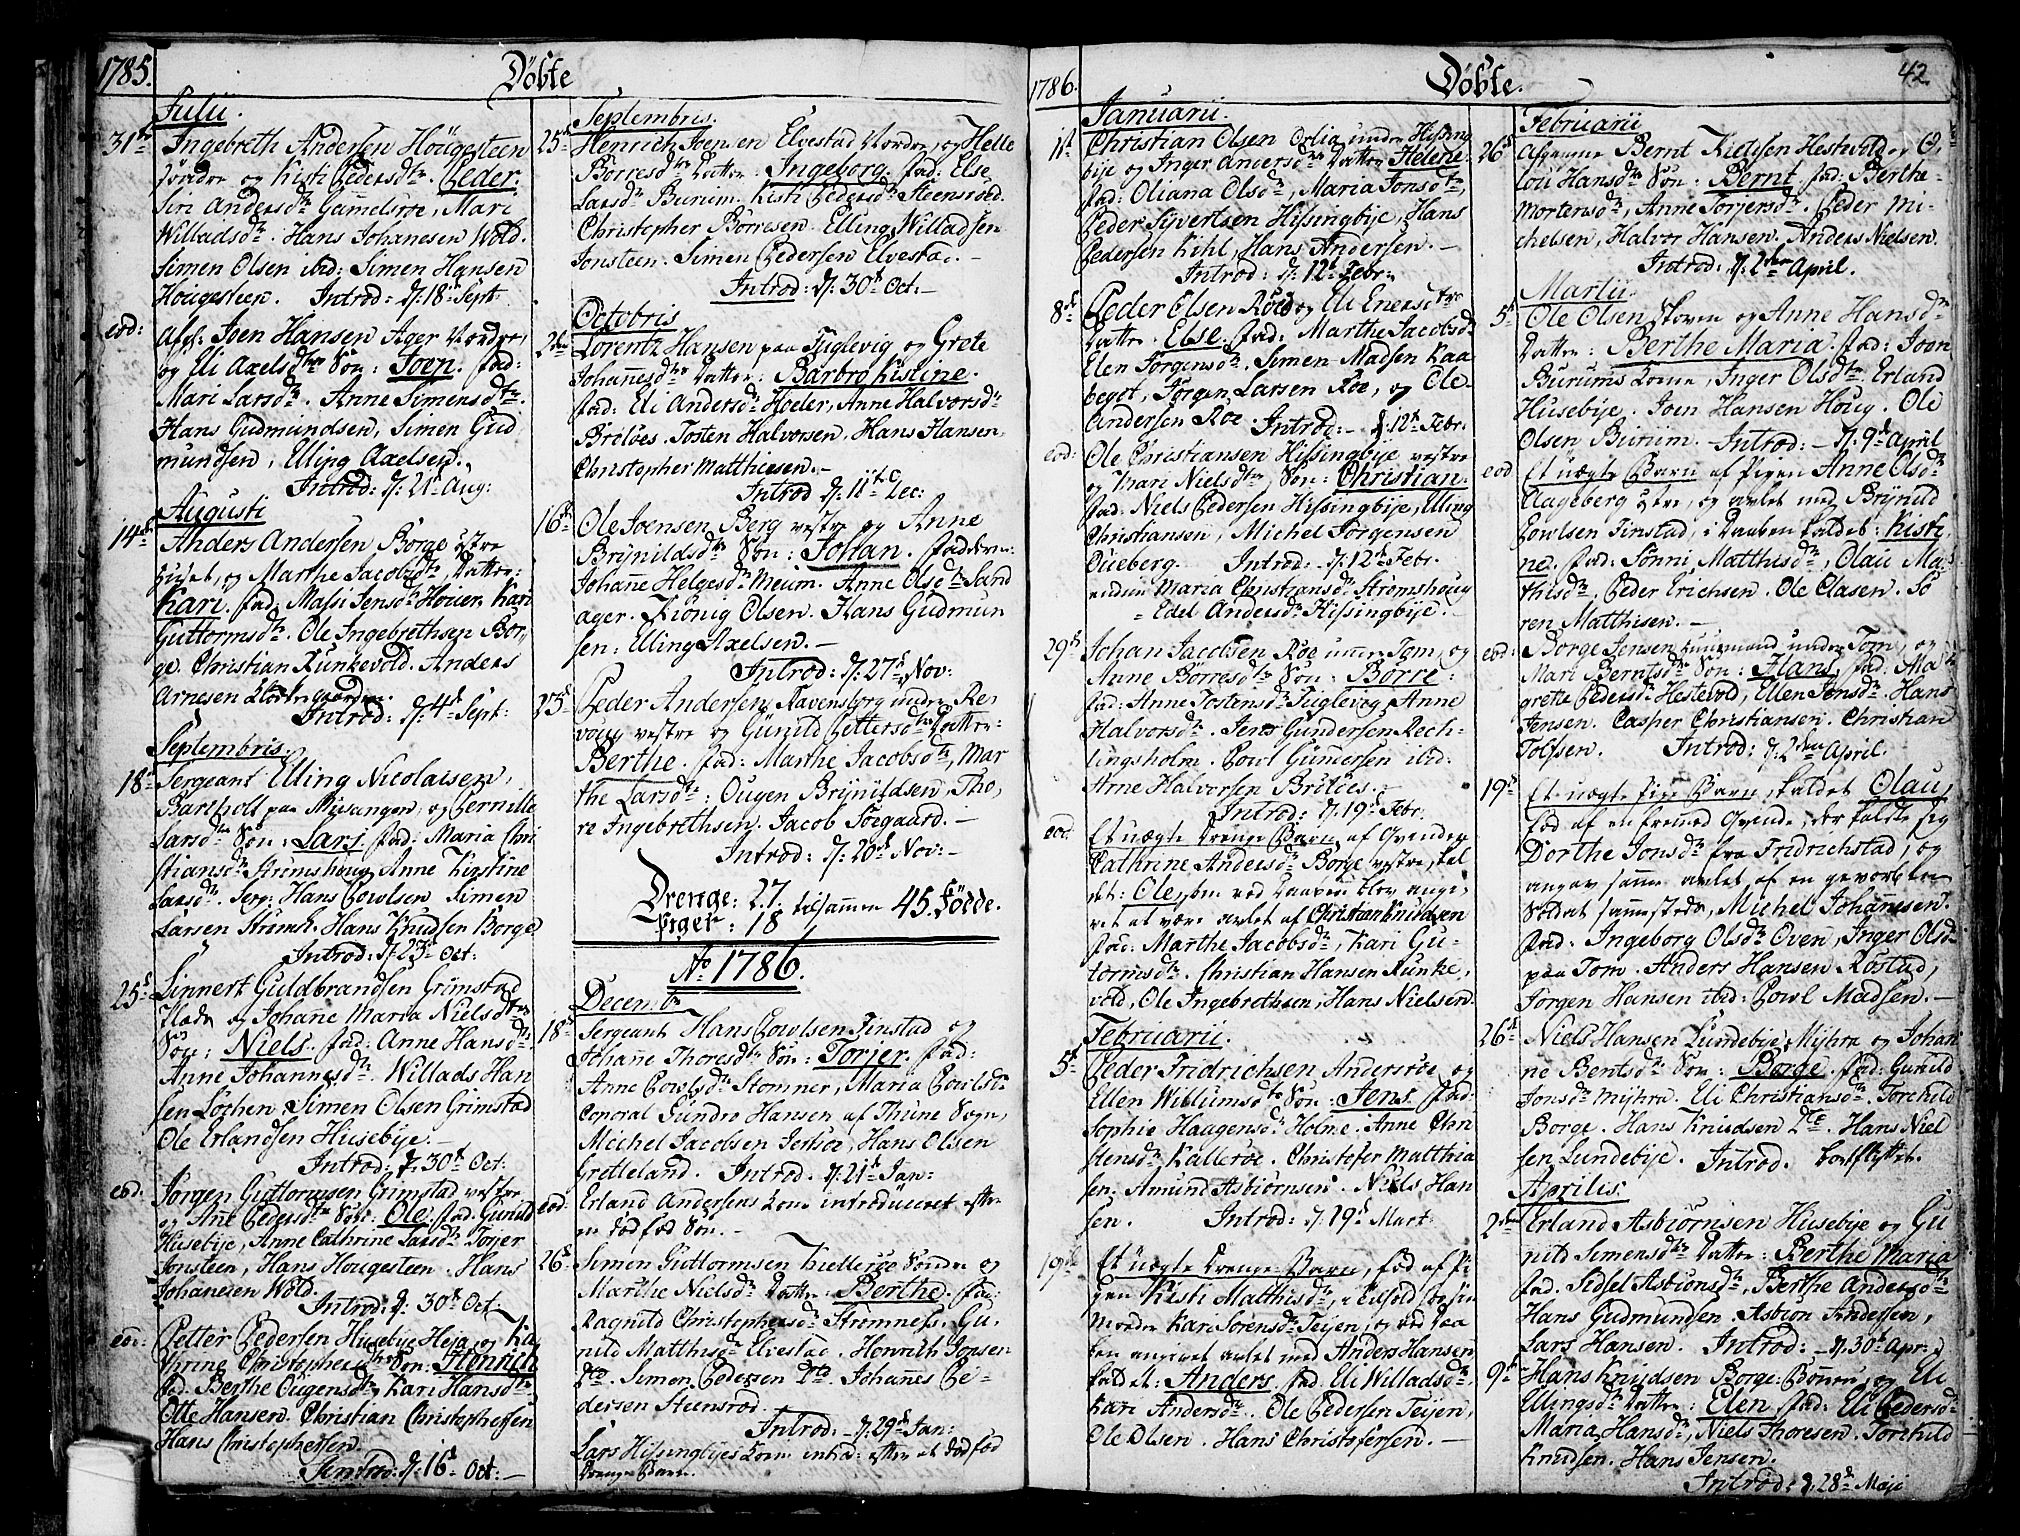 1785.
Döbte
Julii
31te Ingebreth Andersen Höugesteen
söndre og Kisti Pedersdtr. Peder.
Siri Andersdtr Gamelsroe, Mari
Willadsdtr. Hans Johanesen Wold.
Simen Olsen ibid: Simen Hansen
Hougesteen. Introd: d: 18 Sept:
eod: Afg: Joen Hansen Ager Nordre,
og Eli Axelsdtr Sön: Joen. fad:
Mari Larsdtr. Anne Simensdtr.
Hans Gudmundsen, Simen Gud
mundsen, Elling Axelsen.
Introd: d: 21 Aug:
Augusti
14de Anders Andersen Borge östre
huset, og Marthe Jacobsdtr Datter:
Kari. fad: Massi Jensdtr Houer. Kari
Guttormsdtr. Ole Ingebrethsen Bor,
ge. Christian Runkevold. Anders
Arnesen Klostergaarden.
Introd: d: 4de Sept:
Septembris.
18de Sergeant Elling Nicolaisen,
Bartholt paa Misangen, og Pernille
Larsdtr Sön: Lars. fad: Maria Chri
stiansdtr Strömshoug Anne Kirstine
Larsdtr. Serg: Hans Powlsen Simen
Larsen Strömsh. Hans Knudsen Borge
Introd: d: 23 Oct:
25d Linnert Guldbrandsen Grimstad
Pladn og Johane Maria Nielsdtr
Sön: Niels. fad: Anne Hansdtr.
Anne Johannesdtr. Willads Han
sen Löchen. Simen Olsen Grimstad
Ole Erlandsen Husebÿe.
Introd: d: 30te Oct:
eod. Jörgen Guttormsen Grimstad vestre
og Ane Pedersdtr Sön: Ole. fad: Gunild
Husebÿe, Anne Cathrine Larsdtr Torjer
Jonsteen, Hans Hougesteen. Hans
Johanesen Wold.
Introd: d: 30te Oct.
eod: Petter Pedersen Husebÿe Heja og Ka
thrine Christophersdtr Sön: Henrich
fad: Berthe Ougensdtr Kari Hansdtr
Otte Hansen. Christian Christophersen
Hans Christophersen
Introd: d: 16d Oct:
Septembris.
25d Henrich Joensen Elvestad Nordre, og Helle
Börresdtr Datter: Ingeborg. fad: Else
Larsdtr Burum. Kisti Pedersdtr Steensröed.
Christopher Börresen. Elling Willadsen
Jonsteen. Simen Pedersen Elvestad.
Introd: d: 30te Oct:
Octobris
2den Lorentz Hansen paa Fuglevig og Grete
Johannesdtr Datter: Barbro Kistine.
fad: Eli Andersdtr Hoeler, Anne Halvorsdtr
Brilöes. Tosten Halvorsen. Hans Hansen.
Christopher Matthiesen.
Introd d: 11te Dec:
16d Ole Joensen Berg vestre og Anne
Brÿnildsdtr Sön: Johan. faddern:
Johane Helgesdtr Meum. Anne Olsdtr Sand
ager. König Olsen. Hans Gudmun
sen: Elling Axelsen.
Introd: d: 27d Nov:
23d Peder Andersen Navensborg under Re
voug vestre og Gunild Pettersdtr Datter:
Berthe. fad: Marthe Jacobsdtr, Mar
the Larsdtr: Ougen Brÿnildsen, Tho,
re Ingebrethsen. Jacob Soegaard.
Introd: d: 20d Nov:
Drenge: 27.
Piger: 18 tilsammen 45. Födde.
Ao 1786.
Decembr
18d Sergeant Hans Powlsen Tinstad og
Johanne Thoresdtr Sön: Torjer. fad:
Anne Powlsdtr Stomner, Maria Powlsdtr
Coporal Gundro Hansen af Thune Sogn,
Michel Jacobsen Jersöe, Hans Olsen
Gretteland. Introd: d: 21d Jan:
eod: Erland Andersens Kone introduceret efter
en död föd Sön.
26d Simon Guttormsen Kielleröe Söndre og
Marthe Nielsdtr Datter: Berthe. fad:
Ragnild Christophersdtr Strömness. Gu,
nild Matthisdtr Elvestad. Henrich Jonsen
Dto. Simon Pedersen Dto Johannes Pe-
dersen Steensröd.
Introd: d: 29d Jan:
Lars Hissingbÿes Kone introd: efter et död föd
Drenge Barn.
1786.
Döbte.
42
Januarii.
1te Christian Olsen Örlia under Hissing
bÿe og Inger Andersdtr Datter Helene.
fad: Oliana Olsdtr, Maria Jonsdtr,
Peder Sÿvertsen Hissingbÿe, Hans
Pedersen Kihl, Hans Andersen.
Introd: d: 12te Febr:
8d Peder Olsen Röed og Eli Enersdtr
Datter. Else. fad: Marthe Jacobsdtr
Elen Jörgensdtr. Simen Madsen Kaa
beget, Jörgen Larsen Roe, og Ole
Andersen Roe. Introd: d. 12te Febr.
eod: Ole Christiansen Hissingbÿe vestre
og Mari Nielsdtr Sön: Christian.
fad: Niels Pedersen Hissingbÿe, Elling
Christiansen, Michel Jörgensen
Oueberg. Introd: d: 12te Febr.
Maria Christiansdtr Strömshoug
Edel Andersdtr Hissingbÿe.
29d Johan Jacobsen Röe under Tom, og
Anne Börresdtr Sön: Börre.
fad: Anne Tostensdtr Fuglevig, Anne
Halvorsdtr. Jens Gundersen Rech-
lingsholm. Powl Gundersen ibid:
Arne Halvorsen Brilöes.
Introd: d: 19de Febr:
eod. Et uægte Drenge Barn af Qvinden
Cathrine Andersdtr Borge vestre, kal
det: Ole, som ved Daaben blev angi,
vet at være avlet af Christian Knudsen
fad: Marthe Jacobsdtr, Kari Gu-
tormsdtr. Christian Hansen Runke,
vold, Ole Ingebrethsen, Hans Nielsen.
Februarii.
5t Peder Fridrichsen Andersröe, og
Ellen Willumsdtr Sön: Jens. fad:
Sophie Haagensdtr Holme. Anne Chri
stensdtr Källeröe. Christofer Matthia
sen: Amund Asbiörnsen. Niels Han
sen. Introd: d. 19de Mart:
19de Et uægte Drenge-Barn, föd af Pi
gen Kisti Matthisdtr, i Enfold hos sin
Moder Kari Sörensdtr Teÿen, og ved Daa
ben angivet avlet med Anders Hansen
kaldet: Anders. fad: Eli Willadsdtr.
Kari Andersdtr. Ole Pedersen Teÿen,
Ole Olsen. Hans Christofersen.
Februarii
26d Afgangne Bernt Kieldsen Hestvold og O,
lou Hansdtr Sön: Bernt. fad: Berthe
Mortensdtr, Anne Torjersdtr. Peder Mi-
chelsen, Halvor Hansen. Anders Nielsen.
Introd: d: 2den April.
Martii.
5t Ole Olsen Skoven og Anne Hansdtr
Datter: Berthe Maria. fad: Joen
Burums Kone, Inger Olsdtr. Erland
Husebÿe. Joen Hansen Houg. Ole
Olsen Burum. Introd: d. 9de April
eod Et uægte Barn af Pigen Anne Olsdtr
Aageberg östre, og avlet med Brÿnild
Powlsen Tinstad, i Daaben kaldet: Kisti
ne. fad: Sönni Matthisdtr, Olau Ma-
thisdtr, Peder Erichsen. Ole Clasen. Sö
ren Matthisen.
eod: Borge Jensen Huusmand under Tom, og
Mari Berntsdtr Sön: Hans. fad: Ma-
grete Pedersdtr Hestevold, Ellen Jensdtr. Hans
Jensen. Casper Christiansen. Christian
Tolfsen. Introd: d: 2den April.
19de Et uægte Pige Barn, kaldet Olau,
föd af en fremed Qvinde, der kaldte sig
Dorthe Jonsdtr fra Fridrichstad, og
angav samme avlet af en gevorben
Soldat sammestedz, Michel Johannesen.
fad: Ingeborg Olsdtr Oven, Inger Olsdtr
paa Tom. Anders Hansen Röstad,
Jörgen Hansen ibid: Powl Madsen.
26d Niels Hansen Lundebÿe Mÿhra og Johan
ne Bentsdtr Sön: Borge. fad: Gunild
Jonsdtr Mÿhra. Eli Christiansdtr. Torchild
Borge. Hans Knudsen Dto. Hans Niel
sen Lundebÿe. Introd. bortflyttet.
Aprilis.
2den Erland Asbiörnsen Husebÿe og Gu
nild Simensdtr Datter: Berthe Maria
fad. Sidsel Asbionsdtr, Berthe Andersdtr
Hans Gudmundsen. Asbion Andersen,
Lars Hansen. Introd: d. 30te Apr:
9de Hans Knudsen Borge Bönen, og Eli
Ellingsdtr Datter: Elen. fad: Eli Pedersdtr
Maria Hansdtr, Niels Thoresen. Torchild
Knudsen. Hans Jensen.
Introd: d: 28de Maji